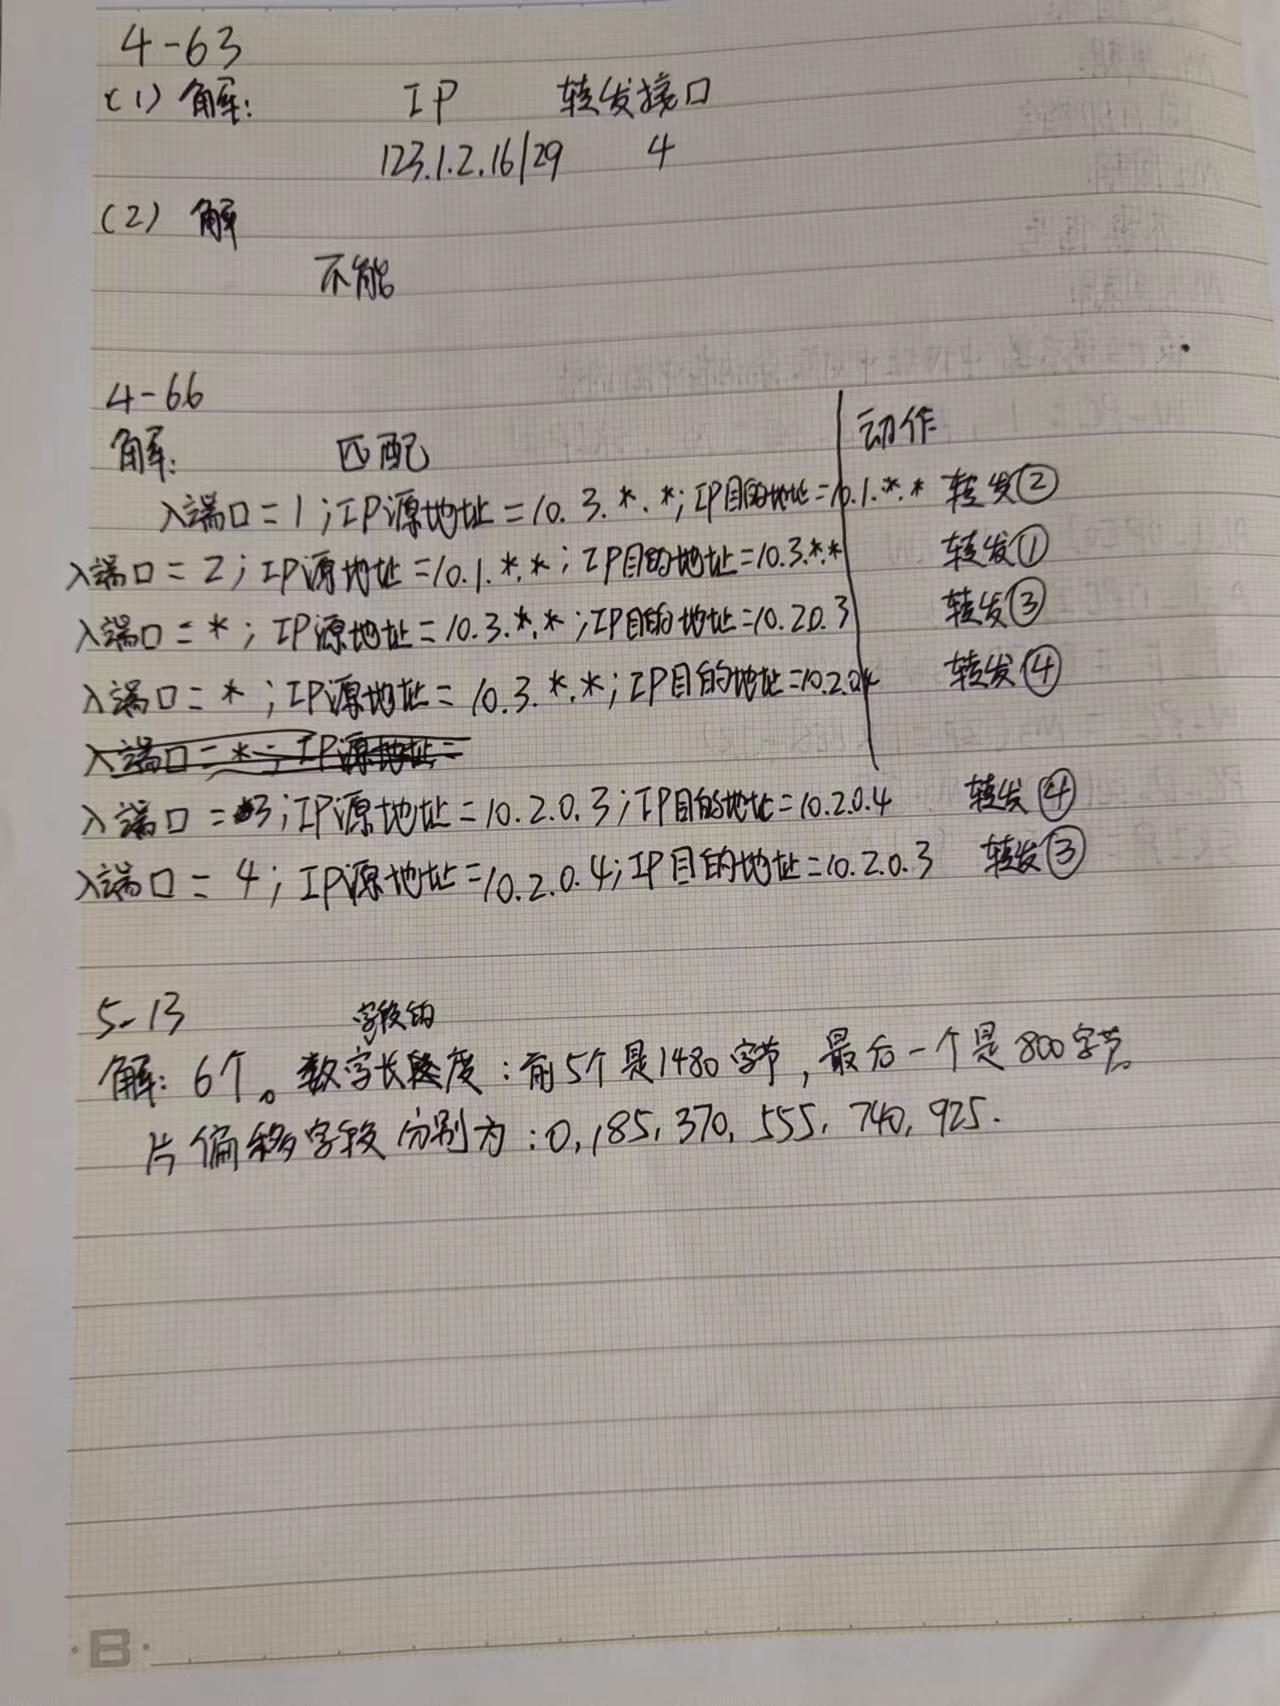 4-63
(1) 解: IP 转发接口
123.1.2.16/29 4
(2) 解
不能
4-66
解: 匹配 动作
入端口=1;IP源地址=10.3.*.*;IP目的地址=10.1.*.* 转发②
入端口=2;IP源地址=10.1.*.*;IP目的地址=10.3.*.* 转发①
入端口=*;IP源地址=10.3.*.*;IP目的地址=10.20.3 转发③
入端口=*;IP源地址=10.3.*.*;IP目的地址=10.2.04 转发④
入端口=*;IP源地址=
入端口=3;IP源地址=10.2.0.3;IP目的地址=10.2.0.4 转发④
入端口=4;IP源地址=10.2.0.4;IP目的地址=10.2.0.3 转发③
5-13
字段的
解:6个。数字长度:前5个是1480字节,最后一个是800字节。
片偏移字段分别为:0,185,370,555,740,925.
B